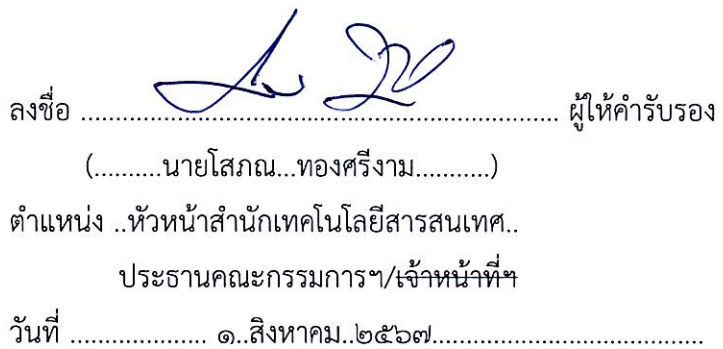 ลงชื่อ ........................................................................ ผู้ให้คำรับรอง
(..........นายโสภณ...ทองศรีงาม...........)
ตำแหน่ง ..หัวหน้าสำนักเทคโนโลยีสารสนเทศ..
ประธานคณะกรรมการฯ/เจ้าหน้าที่ฯ
วันที่ ................... ๑..สิงหาคม..๒๕๖๗......................................